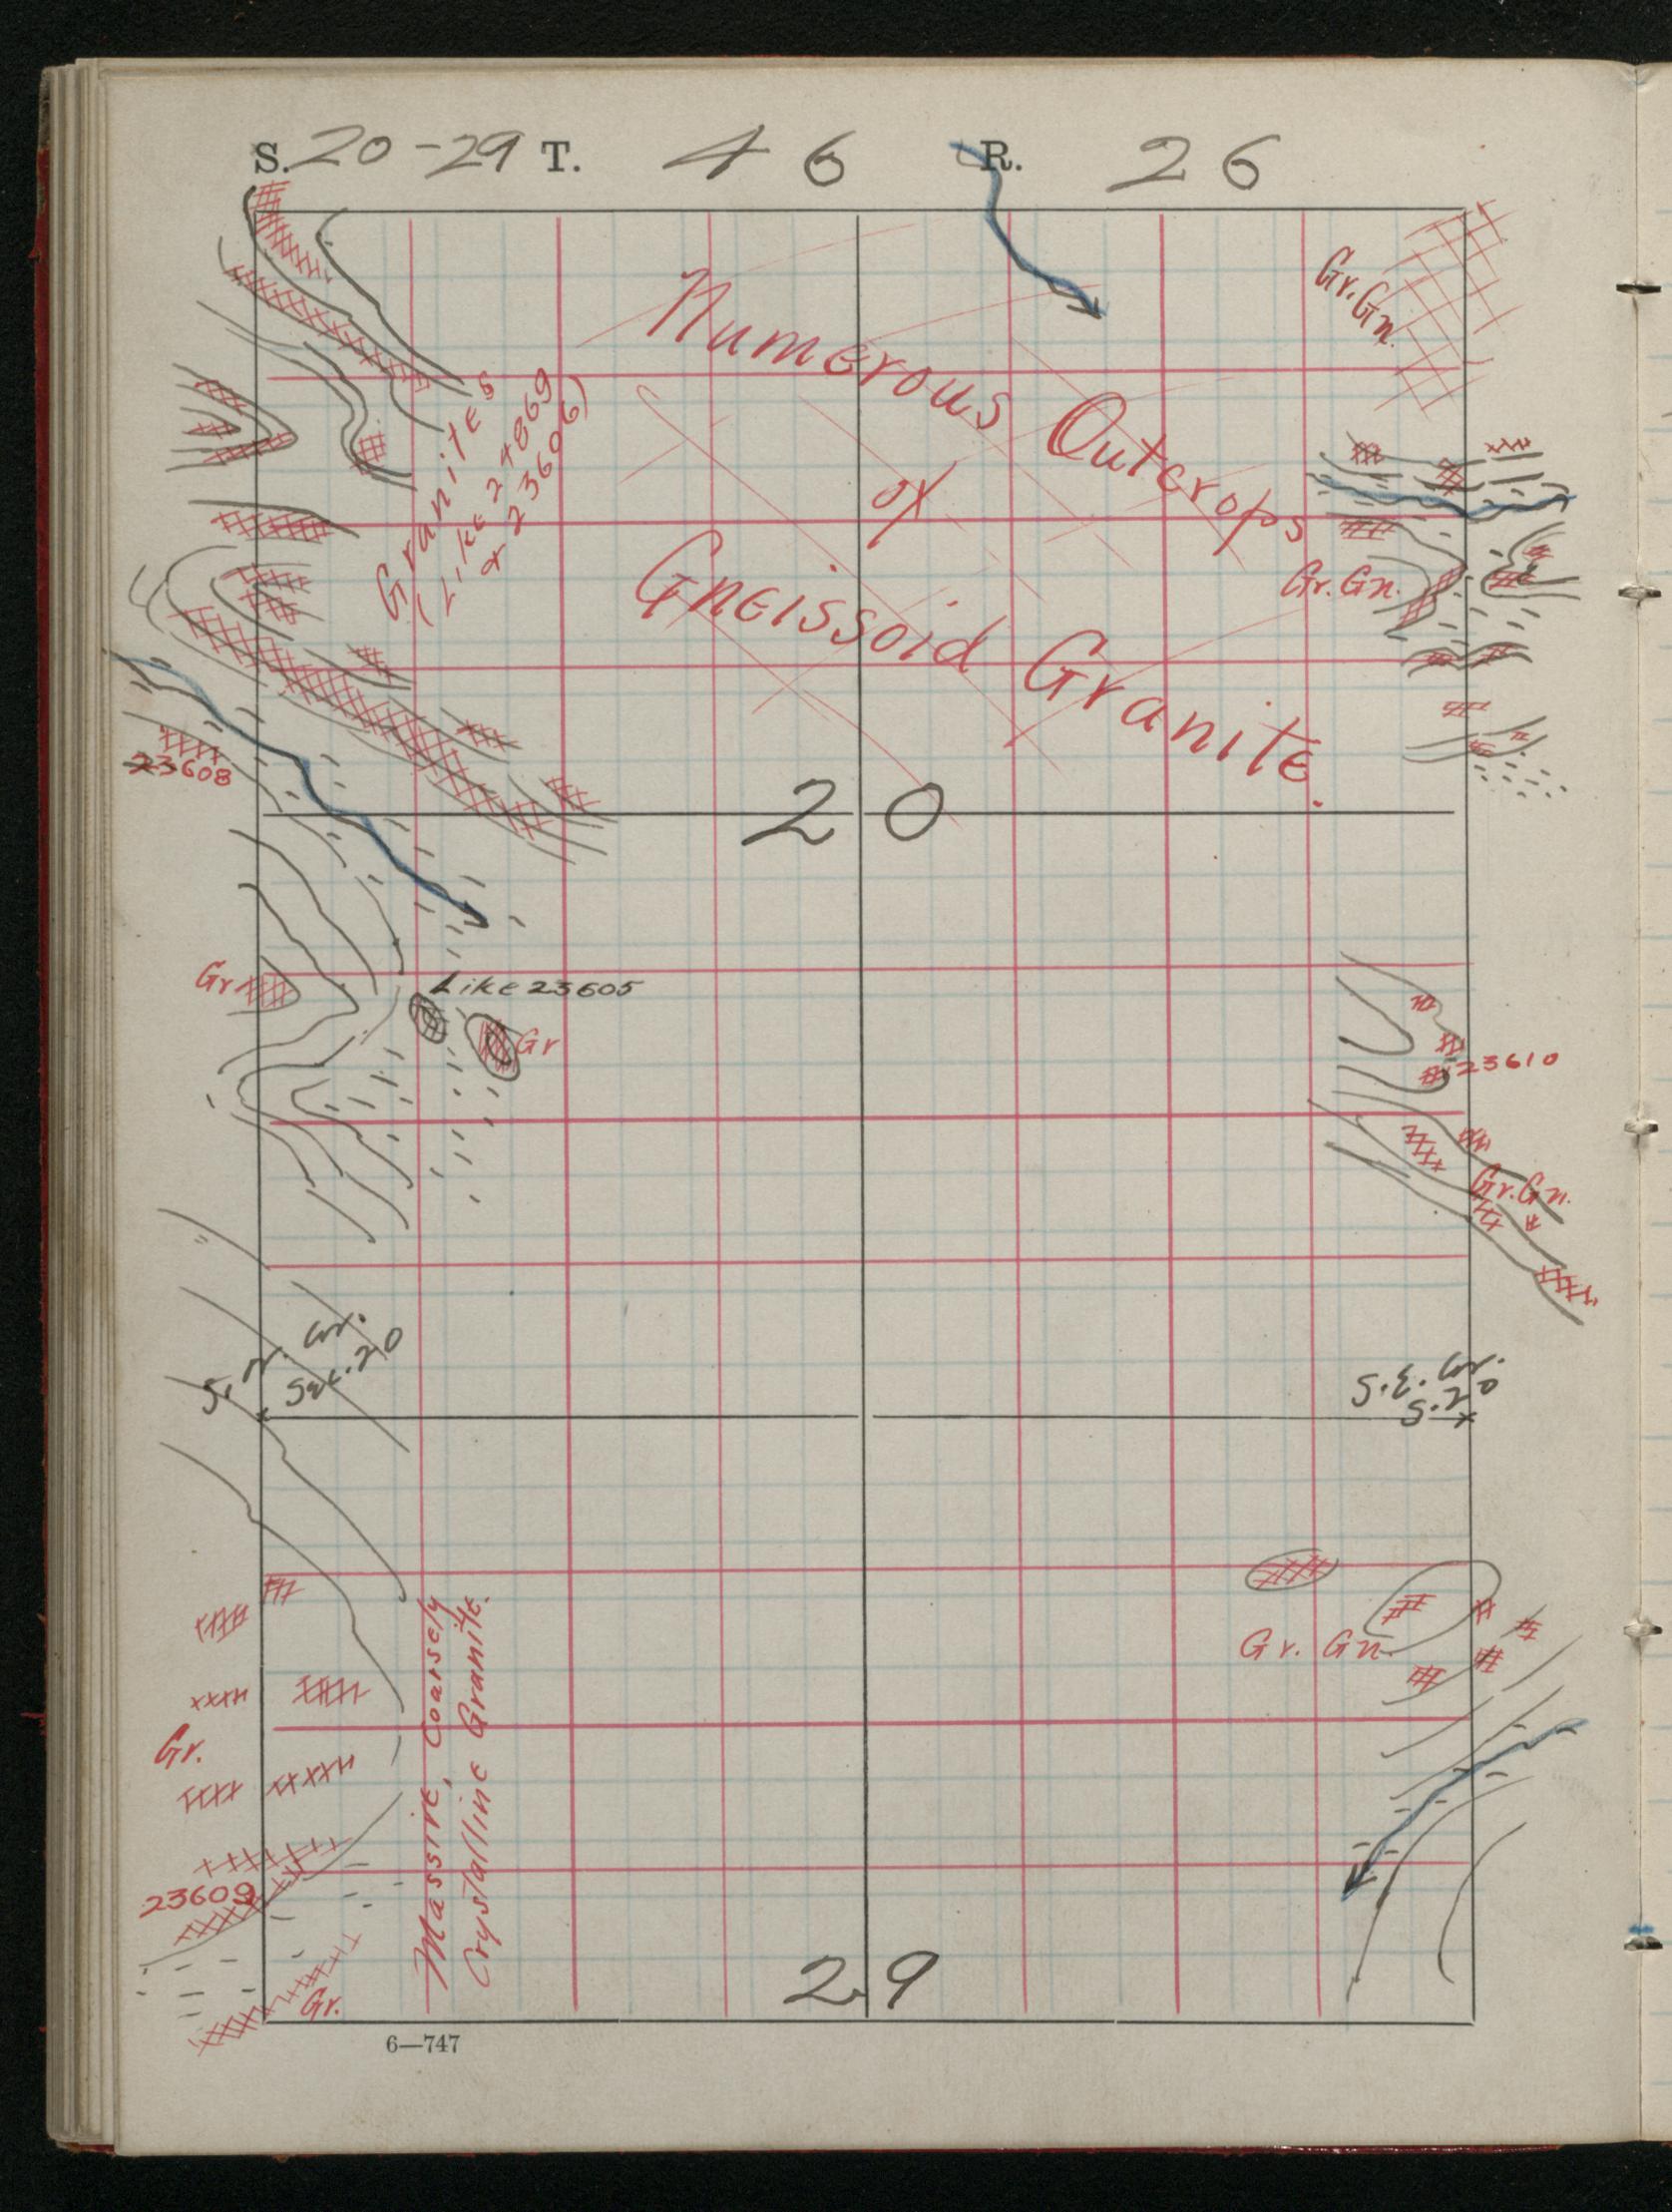 S. 20-29 T. 46 R. 26
Gr.Gn.
Numerous Outcrops
of
Gneissoid Granite.
Granites
(Like 24869
or 23606)
Gr.Gn.
23608
20
Gr
Like 23605
Gr
23610
Gr.Gn.
S.W. Cor.
Sec. 20
S.E. Cor.
S. 20
Gr. Gn.
Massive, Coarsely
Crystalline Granite.
Gr.
23609
Gr.
29
6—747